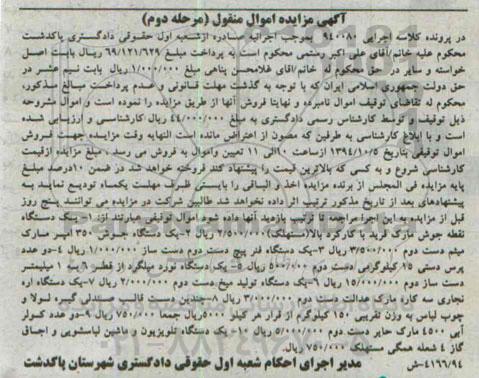 آگهی مزایده اموال منقول (مرحله دوم)
در پرونده کلاسه اجرایی ۹۴۰۰۸۰ بموجب اجرائیه صادره ازشعبه اول حقوقی دادگستری پاکدشت
محکوم علیه خانم/آقای علی اکبر رستمی محکوم است به پرداخت مبلغ ۶۹/۱۲۱/۶۲۹ ریال بابت اصل
خواسته و سایر در حق محکوم له خانم/اقای غلامحسن پناهی مبلغ ۱/۰۰۰/۰۰۰ ریال بابت نیم عشر در
حق دولت جمهوری اسلامی ایران که با توجه به گذشت مهلت قانونی و عدم پرداخت مبالغ مذکور،
محکوم له تقاضای توقیف اموال نامبرده و نهایتا فروش آنها از طریق مزایده را نموده است و اموال مشروحه
ذیل توقیف و توسط کارشناس رسمی دادگستری به مبلغ ۴۴/۰۰۰/۰۰۰ ریال کارشناسی و ارزیابی شده
است و با ابلاغ کارشناسی به طرفین که مصون از اعتراض مانده است النهایه وقت مزایده جهت فروش
اموال توقیفی بتاریخ ۱۳۹۴/۱۰/۵ ازساعت ۱۰الی ۱۱ تعیین واموال به فروش می رسد . مبلغ مزایده ازقیمت
کارشناسی شروع و به کسی که بالاترین قیمت را پیشنهاد کند فروخته خواهد شد در ضمن ۱۰درصد مبلغ
پایه مزایده فی المجلس از برنده مزایده اخذ و الباقی را بایستی ظرف مهلت یکماه تودیع نماید به
پیشنهادهای بعد از تاریخ مذکور ترتیب اثر داده نخواهد شد طالبین شرکت در مزایده می توانند پنج روز
قبل از مزایده به این اجرا مراجعه تا ترتیب بازدید آنها داده شود اموال توقیفی عبارتند از: ۱-یک دستگاه
نقطه جوش مارک فرید با کارکرد بالا(مستهلک) ۲/۵۰۰/۰۰۰ ریال ۲-یک دستگاه جوش ۳۵۰ امپر مبارک
میثم دست دوم ۳/۵۰۰/۰۰۰ ریال ۳-یک دستگاه فنر پیچ دست دوم دست ساز ۱/۰۰۰/۰۰۰ ریال ۴-دو عدد
پرس دستی ۱۵ کیلوگرمی دست دوم ۵۰۰/۰۰۰ ریال ۵-یک دستگاه نورد میلگرد از قطر ۶ به ۱ میلیمتر
دست ساز دوم ۱۵/۰۰۰/۰۰۰ ریال ۶-یک دستگاه تولید میخ دست دوم ۲/۰۰۰/۰۰۰ ریال ۷-یک دستگاه اره
نجاری سه کاره مارک عدالت دست دوم ۳/۰۰۰/۰۰۰ ریال ۸-چندین دست قالب صندلی گیره لولا و
چوب لباس به وزن تقریبی ۱۵۰ کیلوگرم از قرار هر کیلو ۵۰۰۰ریال جمعا ۷۵۰/۰۰۰ ریال ۹-دو عدد کولر
آبی ۴۵۰۰ مارک حایر دست دوم ۵/۰۰۰/۰۰۰ ریال ۱۰-یک دستگاه تلویزیون و ماشین لباسشویی و اجاق
گاز ۴ شعله همگی مستهلک ۷۵۰/۰۰۰ ریال.
۴۱۶۶/۹۴-ش مدیر اجرای احکام شعبه اول حقوقی دادگستری شهرستان پاکدشت